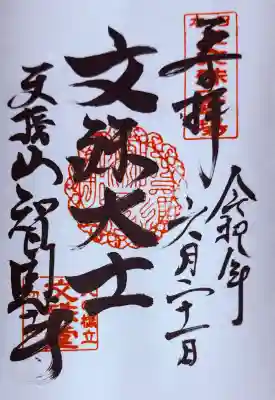 奉拝
令和年
六月二十一日
文殊大士
天橋山智恩寺
橋立
文殊堂